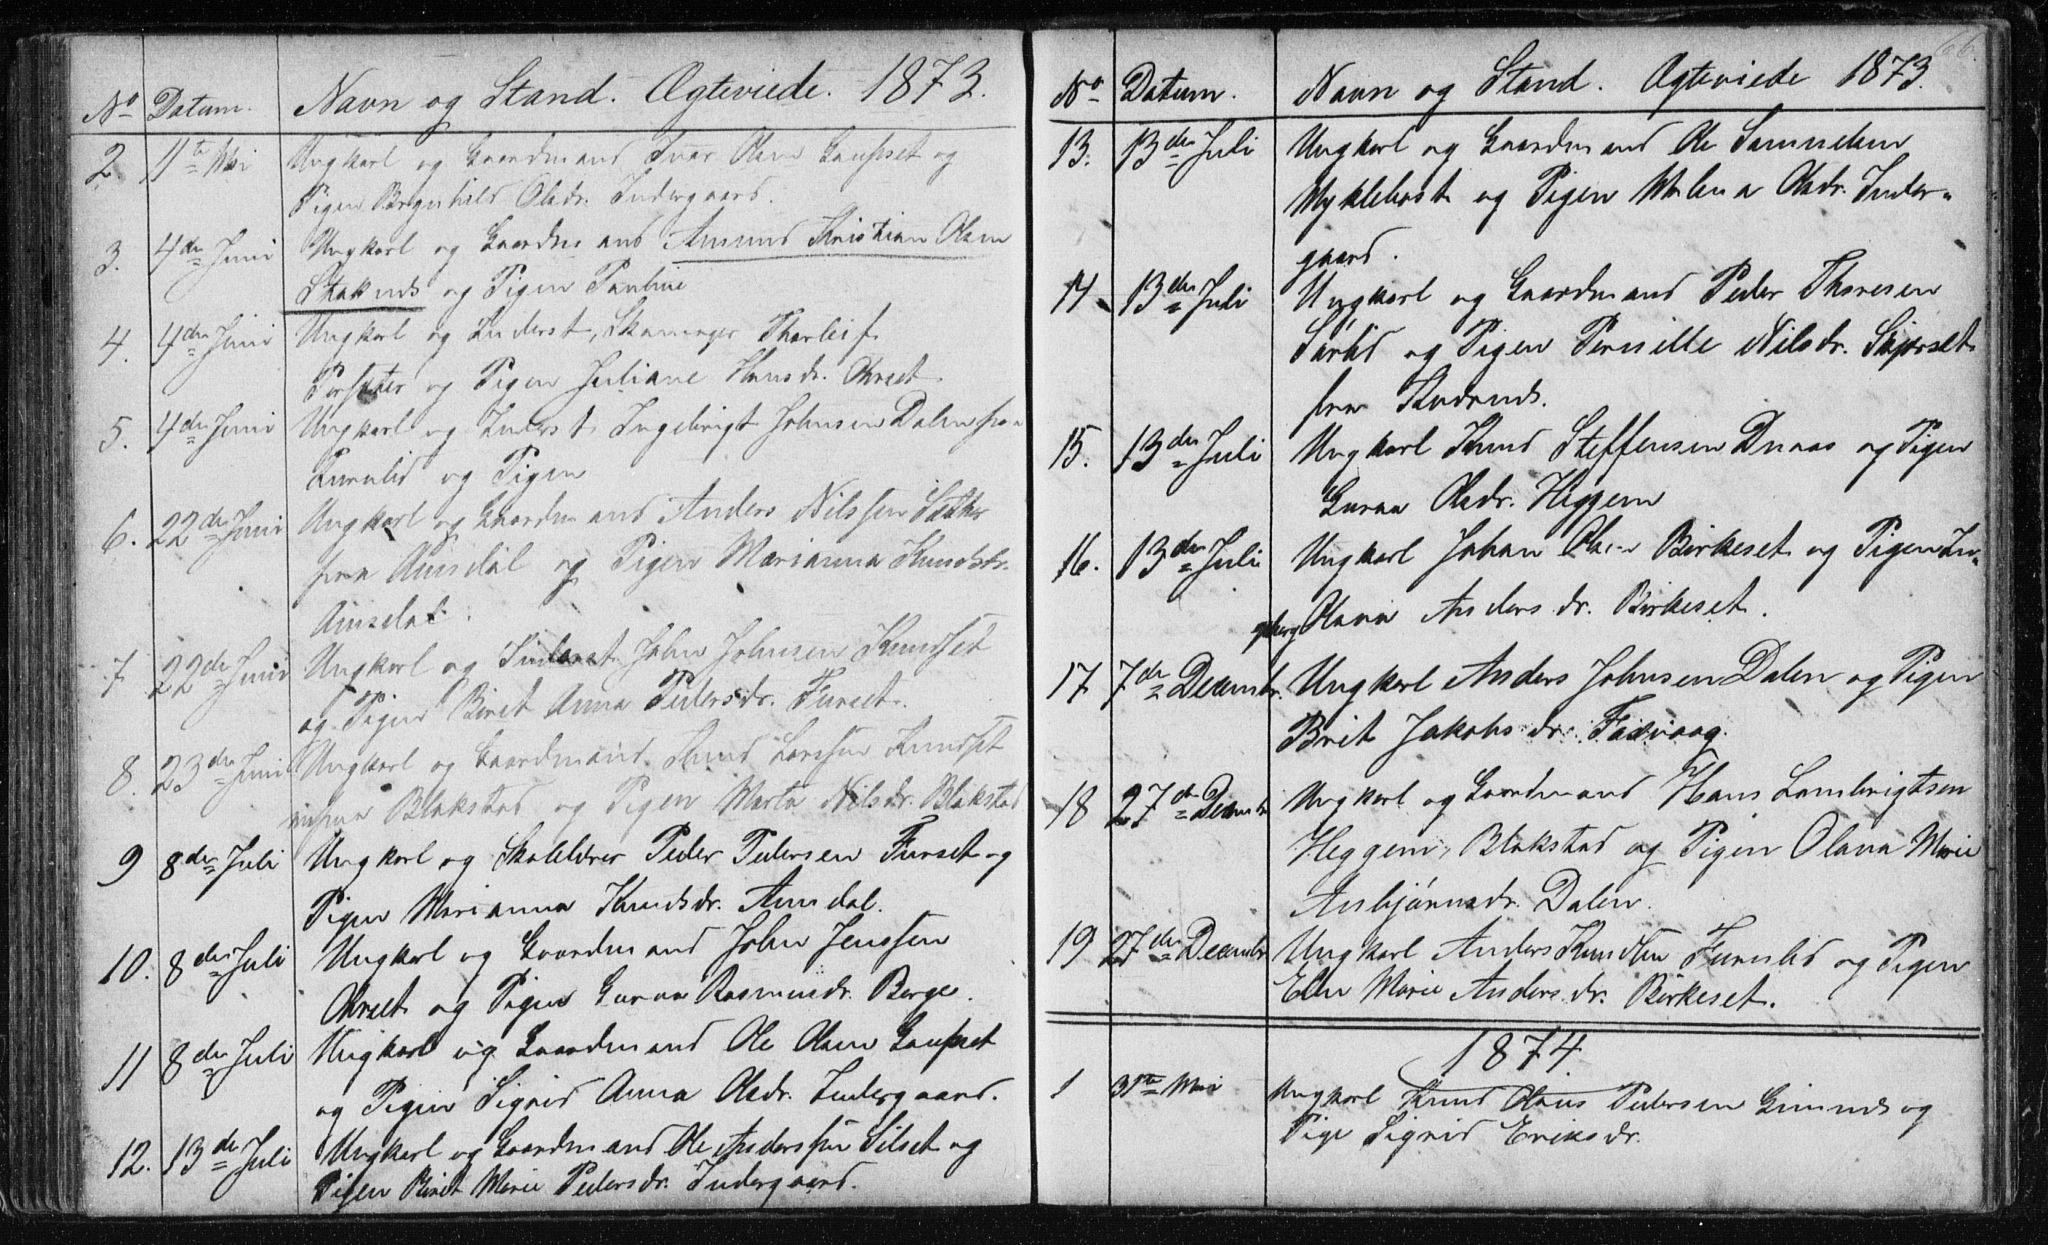 No Datum. Navn og Stand. Ægteviede. 1873.
2. 11te Mai Ungkarl og Gaardmand Ivar Olsen Gaupset og
Pigen Brynhild Olsdr. Indergaard.
3. 4de Juni Ungkarl og Gaardmand Amund Kristian Olsen
og Pigen Pauline
4. 4de Juni Ungkarl og Inderst, Skomager Thorleif
og Pigen Juliane Hansdr. Orset
5. 4de Juni Ungkarl og Inderst Ingebrigt Johnsen Dalen fra
Furulid og Pigen
6. 22de Juni Ungkarl og Gaardmand Anders Nilssen Sæther
fra Aarsdal og Pigen Marianna Knudsdr.
7 22de Juni Ungkarl og Inderst John Johnsen Knudset
og Pigen Beret Anna Pedersdr. Furset.
8. 23de Juni Ungkarl og Gaardmand Knud Larssen Knudset
Blakstad og Pigen Marta Nilsdr. Blakstad
9 8de Juli Ungkarl og Skolelærer Peder Pedersen Furset og
Pigen Marianna Knudsdr.
10. 8de Juli Ungkarl og Gaardmand John Jenssen
Orset og Pigen Guraa Rasmusdr. Berge.
11 8de Juli Ungkarl og Gaardmand Ole Olsen Gaupset
og Pigen Sigrid Anna Olsdr. Indergaard.
12. 13de Juli Ungkarl og Gaardmand Ole Anderssen Silset og
Pigen Beret Marie Pedersdr. Indergaard.
66.
No Datum. Navn og Stand. Ægteviede 1873.
13. 13de Juli Ungkarl og Gaardmand Ole Samuelsen
Myklebost og Pigen Malena Olsdr. Inder-
gaard.
14 13de Juli Ungkarl og Gaardmand Peder Thoresen
Sørlid og Pigen Pernille Nilsdr. Skjørset
fra
15. 13de Juli Ungkarl Knud Steffensen Dnaas og Pigen
Guraa Olsdr. Heggem
16. 13de Juli Ungkarl Johan Olsen Birkeset og Pigen In-
geborg Olava Andersdr. Birkeset.
17 7de Decembr. Ungkarl Anders Johnsen Dalen og Pigen
Brit Jakobsdr. Farvaag.
18 27de Decembr Ungkarl og Gaardmand Hans Lambrigtsen
Heggem, Blakstad og Pigen Olava Marie
Asbjørnsdr. Dalen.
19 27de Decembr Ungkarl Anders Knudsen Furulid og Pigen
Elen Marie Andersdr. Birkeset.
1874.
1 31te Mai Ungkarl Knud Olaus Pedersen Gimnes og
Pige Sigrid Eriksdr.